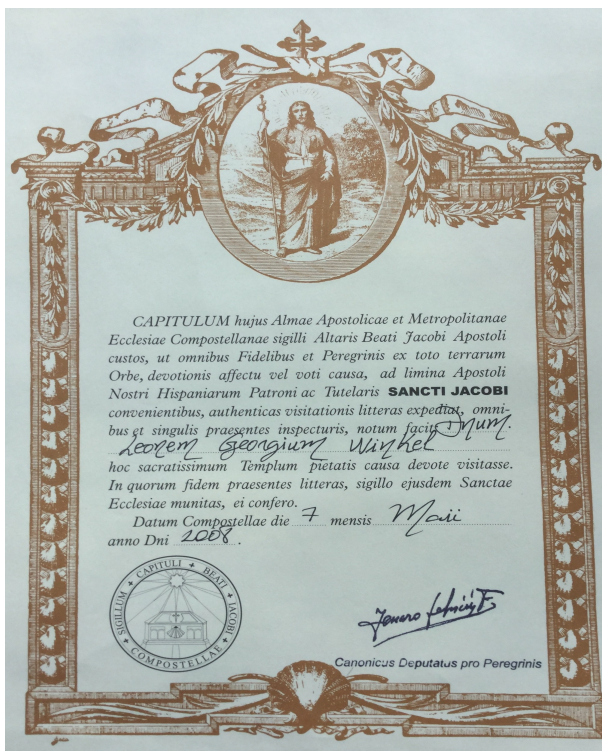 CAPITULUM hujus Almae Apostolicae et Metropolitanae
Ecclesiae Compostellanae sigilli Altaris Beati Jacobi Apostoli
custos, ut omnibus Fidelibus et Peregrinis ex toto terrarum
Orbe, devotionis affectu vel voti causa, ad limina Apostoli
Nostri Hispaniarum Patroni ac Tutelaris SANCTI JACOBI
convenientibus, authenticas visitationis litteras expediat, omni-
bus et singulis praesentes inspecturis, notum facit: Dnum.
Leonem Georgium Winkel
hoc sacratissimum Templum pietatis causa devote visitasse.
In quorum fidem praesentes litteras, sigillo ejusdem Sanctae
Ecclesiae munitas, ei confero.
Datum Compostellae die 7 mensis Maii
anno Dni 2008.
SIGILLUM + CAPITULI + BEATI + IACOBI + COMPOSTELLAE +
Canonicus Deputatus pro Peregrinis